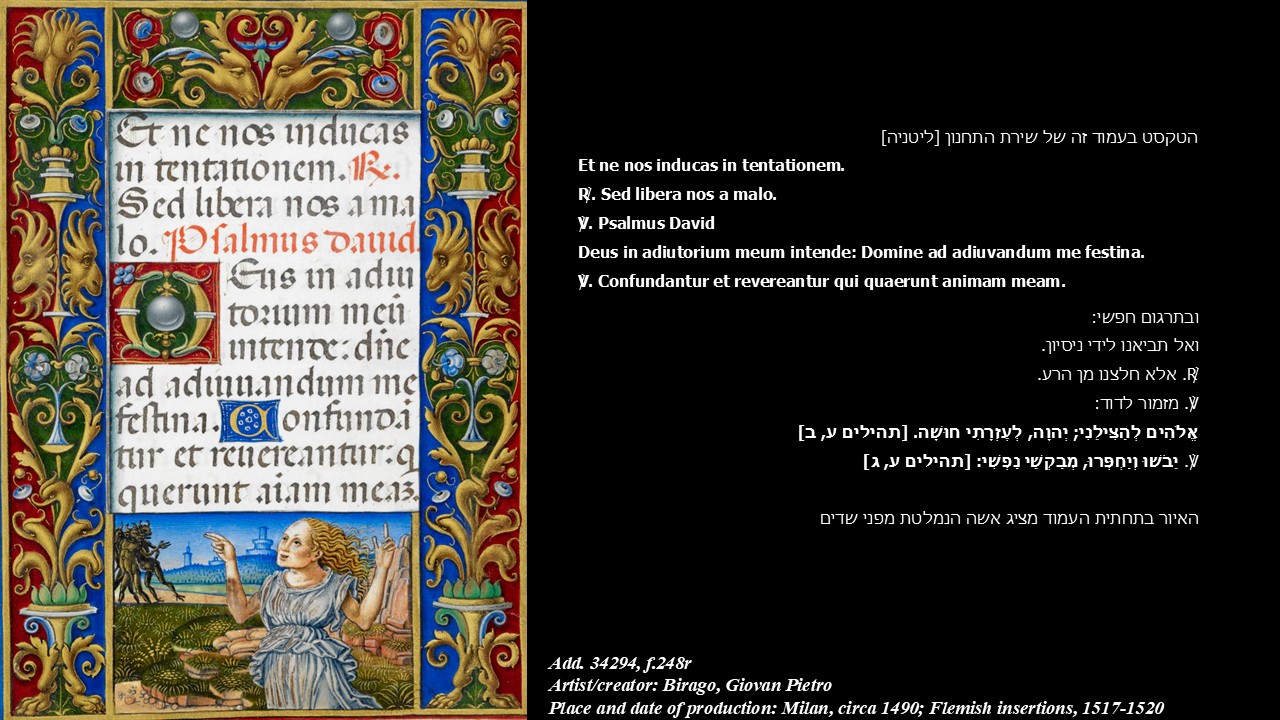 Et ne nos inducas
in tentationem. R.
Sed libera nos a ma
lo. Psalmus dauid.
Deus in adiu
torium meū
intende: dn̄e
ad adiuuandum me
festina. Confundā
tur et reuereantur: q
querunt aīam meaʒ.
הטקסט בעמוד זה של שירת התחנון [ליטניה]
Et ne nos inducas in tentationem.
℟. Sed libera nos a malo.
℣. Psalmus David
Deus in adiutorium meum intende: Domine ad adiuvandum me festina.
℣. Confundantur et revereantur qui quaerunt animam meam.
ובתרגום חפשי:
ואל תביאנו לידי ניסיון.
℟. אלא חלצנו מן הרע.
℣. מזמור לדוד:
אֱלֹהִים לְהַצִּילֵנִי; יְהוָה, לְעֶזְרָתִי חוּשָׁה. [תהילים ע, ב]
℣. יֵבֹשׁוּ וְיַחְפְּרוּ, מְבַקְשֵׁי נַפְשִׁי: [תהילים ע, ג]
האיור בתחתית העמוד מציג אשה הנמלטת מפני שדים
Add. 34294, f.248r
Artist/creator: Birago, Giovan Pietro
Place and date of production: Milan, circa 1490; Flemish insertions, 1517-1520